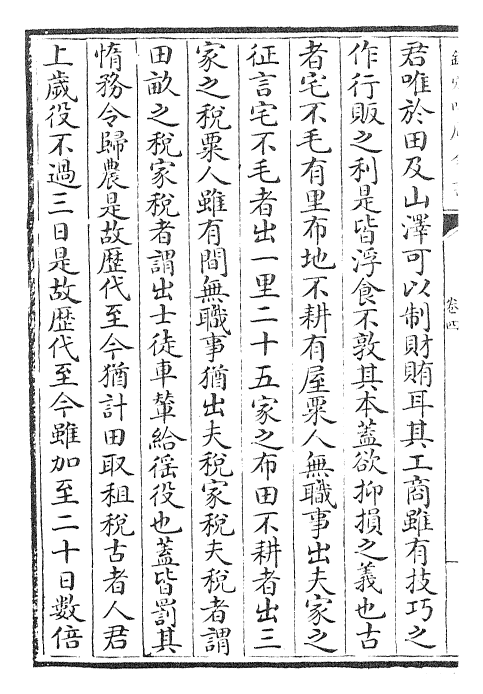 君唯於田及山澤可以制財賄耳其工商雖有技巧之
作行販之利是皆浮食不敦其本蓋欲抑損之義也古
者宅不毛有里布地不耕有屋粟人無職事出夫家之
征言宅不毛者出一里二十五家之布田不耕者出三
家之稅粟人雖有閒無職事猶出夫稅家稅夫稅者謂
田畝之稅家稅者謂出士徒車輦給徭役也蓋皆罰其
惰務令歸農是故歷代至今猶計田取租稅古者人君
上歲役不過三日是故歷代至今雖加至二十日數倍
卷四